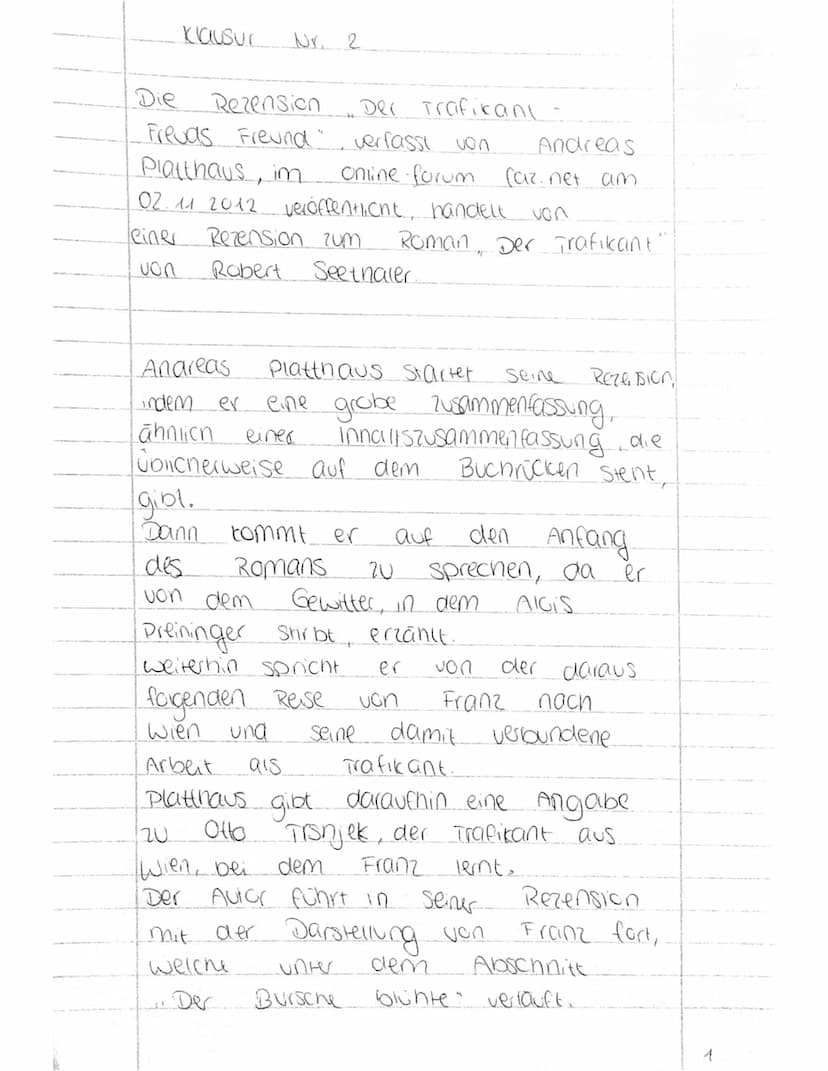 Klausur Nr. 2
Die Rezension „Der Trafikant -
Freuds Freund", verfasst von Andreas
Platthaus, im online-forum faz.net am
02.11.2012 veröffentlicht, handelt von
einer Rezension zum Roman „Der Trafikant"
von Robert Seethaler.
Andreas Platthaus startet seine Rezension,
indem er eine grobe Zusammenfassung,
ähnlich einer Inhaltszusammenfassung, die
üblicherweise auf dem Buchrücken steht,
gibt.
Dann kommt er auf den Anfang
des Romans zu sprechen, da er
von dem Gewitter, in dem Alois
Preininger stirbt, erzählt.
Weiterhin spricht er von der daraus
folgenden Reise von Franz nach
Wien und seine damit verbundene
Arbeit als Trafikant.
Platthaus gibt daraufhin eine Angabe
zu Otto Trsnjek, der Trafikant aus
Wien, bei dem Franz lernt.
Der Autor führt in seiner Rezension
mit der Darstellung von Franz fort,
welche unter dem Abschnitt
„Der Bursche blühte" verläuft.
1